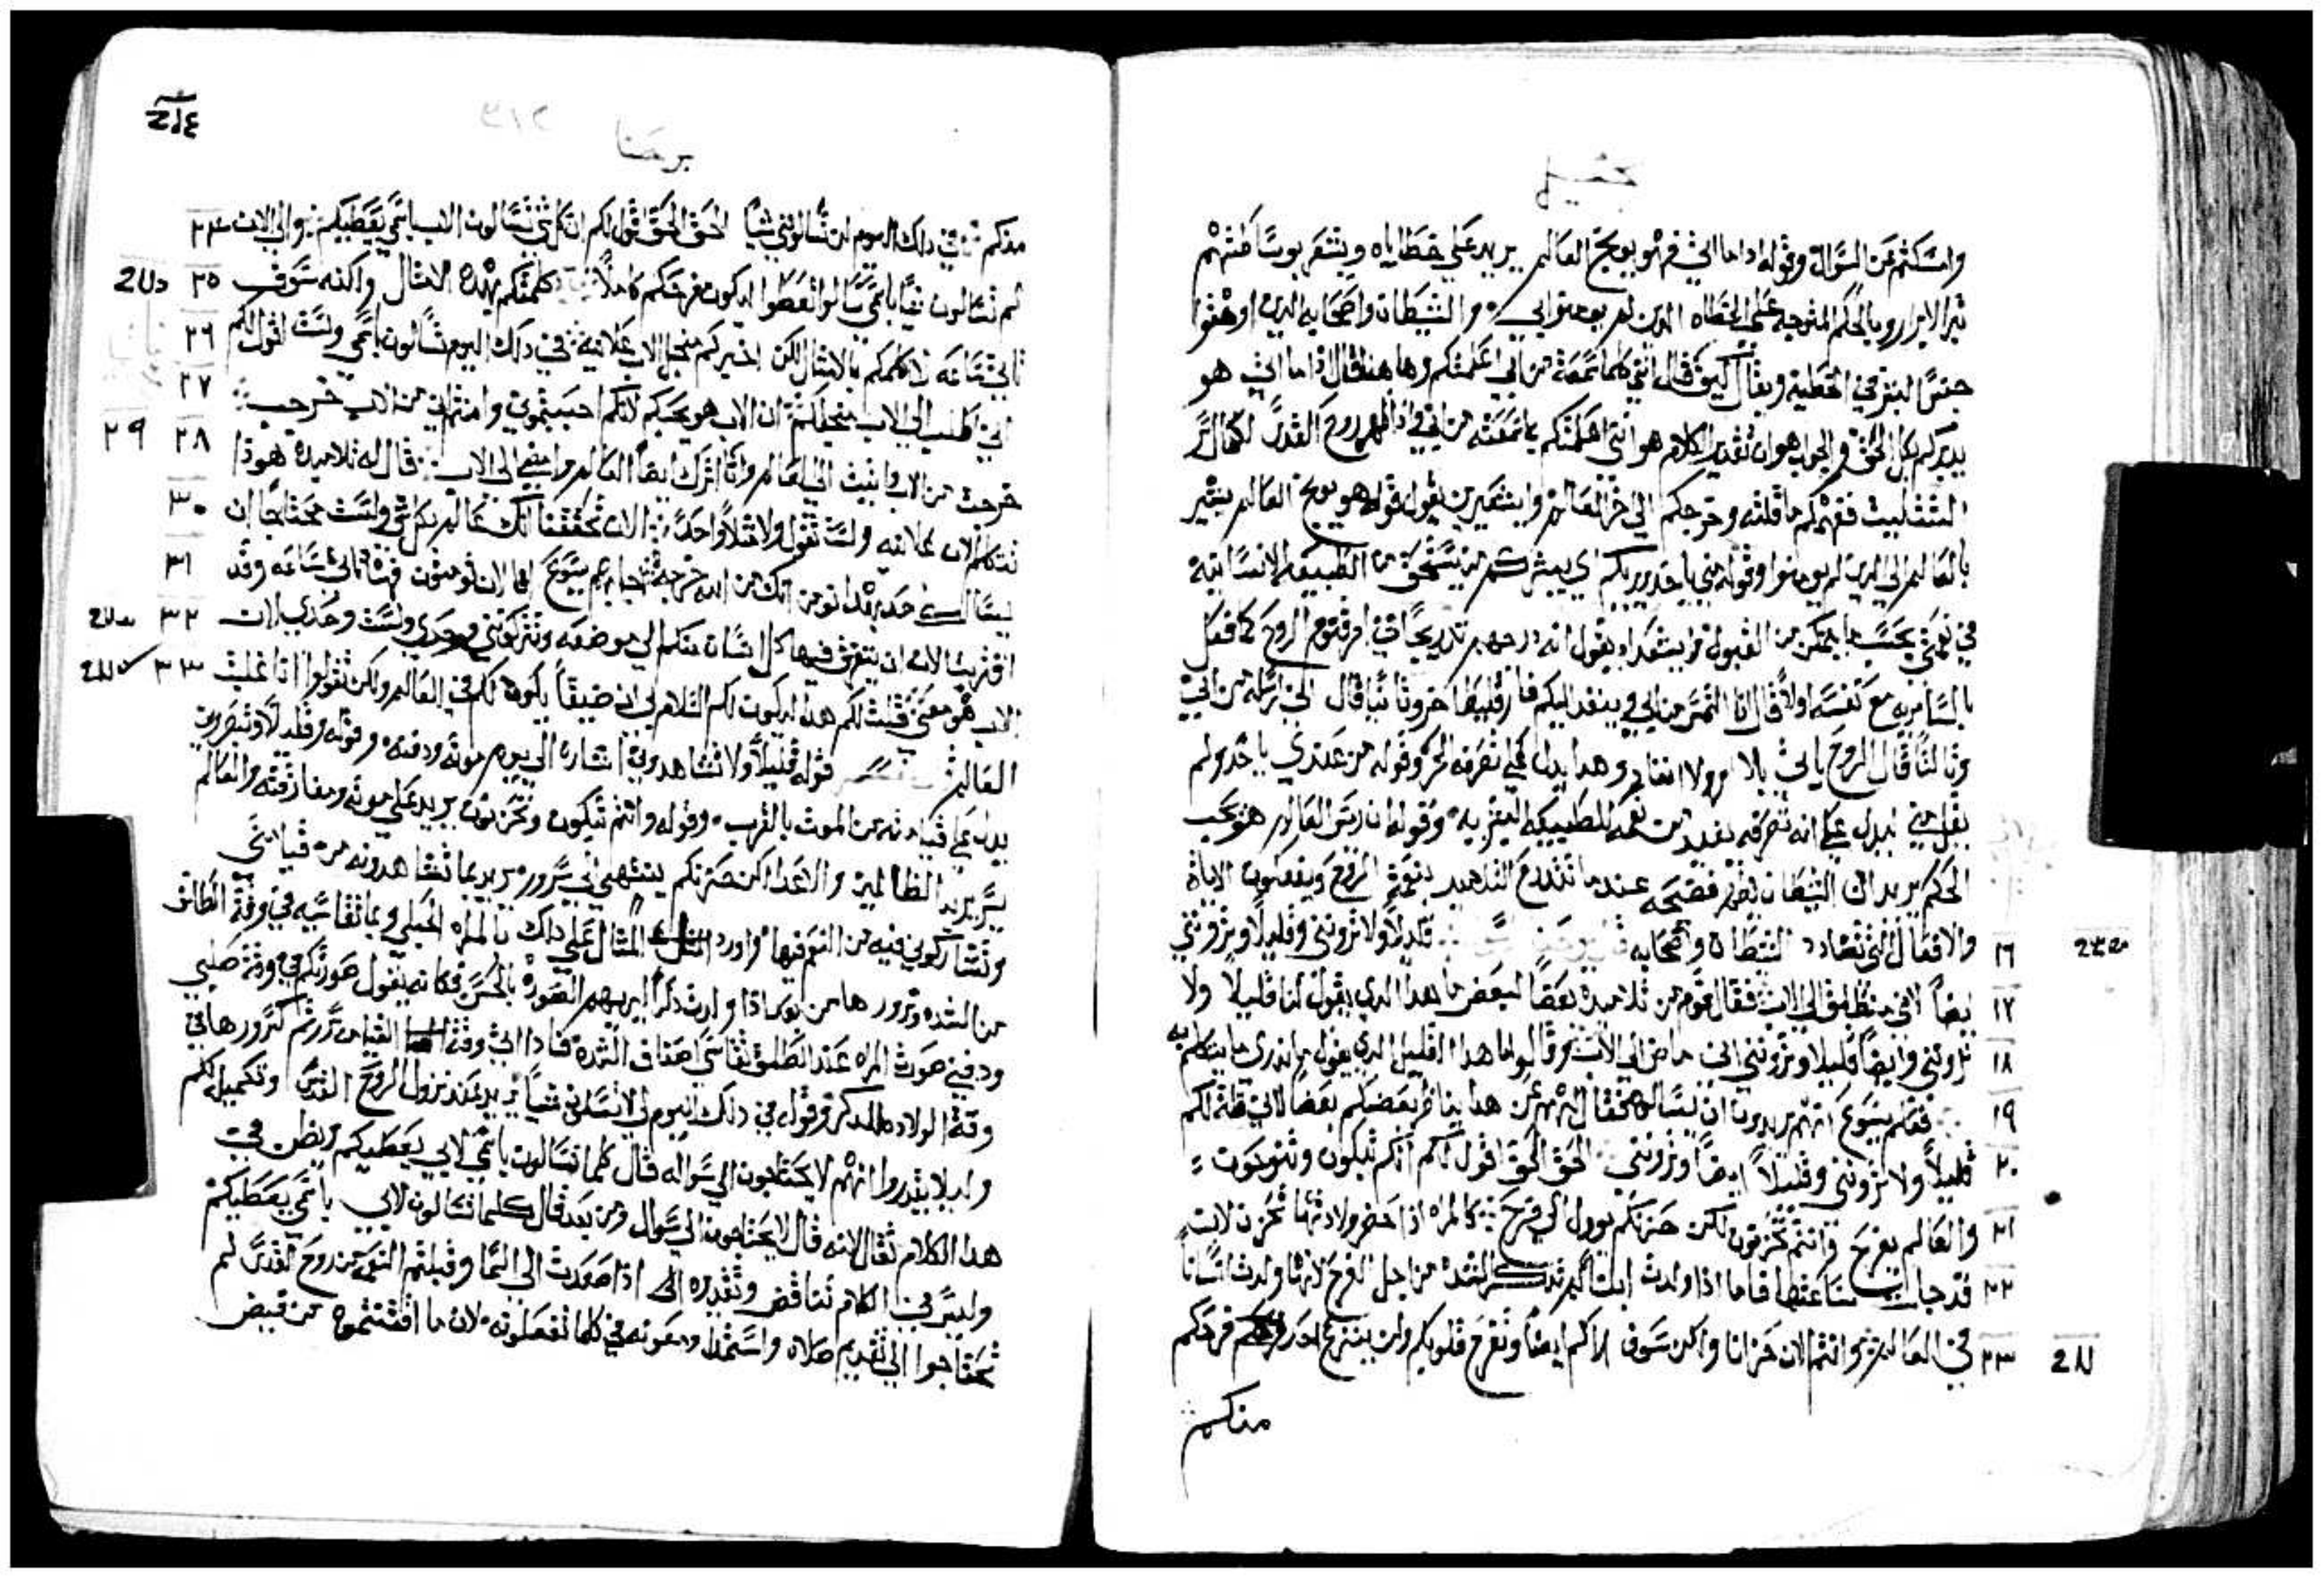 وامسكتم عن السوال وقوله اذا ما اتي فهو يوبخ العالم يريد علي خطاياه ويشعر بوساطتهم
تبر الابرار وبالحكم المتوجه علي الخطاه الدين لم يومنوا بي والشيطان واصحابه الدين اوهقوا
جنس البشر في الخطيه ويقال كيف قال انني كلما سمعته من ابي اعلمتكم وها هنا قال اذا ما اتي هو
يدبركم بكل الحق والجواب هو ان تقدير الكلام هو انني اعلمتكم ما سمعته من ابي واذا ظهر روح القدس لكمال سر
التتليت فهمكم ما قلته وخرجكم الي خر العالم يقول قوله هو يوبخ العالم يشير
بالعالم الي الدين لم يومنوا وقوله مني ياخد ويريكم اي يبشركم من يستحق من الطبيعه الانسانيه
في نعمتي بحسب ما يمكن من القبول يقول انه درجهم تدريجا في امر قنوم الروح كما فعل
بالسامريه مع نفسه اولا قال انا التمس من ابي وينفد اليكم فارقليطا اخر وتانيا قال الدي ارسله من ابي
وتالتا قال الروح ياتي بلا ولا انفاد وهدا يدل علي تصرفه الحر وقوله من عندي ياخد ولم
يقل مني ليدل علي انه تصرفه من نعمه للطبيعه البشريه وقوله ان رييس العالم هنو يجب
الحكم يريد ان الشيطان يظهر فضيحه عندما تتدرع التلاميد بنعمة الروح ويفعلون الايات
١٦ والافعال التي تضادد الشيطان واصحابه قليلا ولا تروني وقليلا وتروني
١٧ ايضا لاني منطلق الي الاب فقال قوم من تلاميده بعضا لبعض ما هدا الدي يقول لنا قليلا ولا
١٨ تروني وايضا قليلا وتروني اني ماض الي الاب وقالوا ما هدا القليل الدي يقول ما ندري ما يتكلم به
١٩ فعلم يسوع انهم يريدون ان يسالوه فقال لهم عن هدا يناظر بعضكم بعضا لاني قلت لكم
٢٠ قليلا ولا تروني وقليلا ايضا وتروني الحق الحق اقول لكم انكم تبكون وتنوحون
٢١ والعالم يفرح وانتم تحزنون لكن حزنكم يوول الي فرح كالمراه اذا حضر ولادتها تحزن لان
٢٢ قد جات ساعتها فاما اذا ولدت ابنا لم تدكر الشده من اجل الفرح لانها ولدت انسانا
٢٣ في العالم وانتم الان حزانا ولكن سوف اراكم ايضا وتفرح قلوبكم ولن ينتزع احد فرحكم
منكم
يوحنا
منكم في دلك اليوم لن تسالوني شيا الحق الحق اقول لكم ان كل شي تسالون الاب باسمي يعطيكم والي الان ٢٤
لم تسالون شيا باسمي سالوا تعطوا ليكون فرحكم كاملا كلمتكم بهده الامتال ولكنه سوف ٢٥
تاتي ساعه لا اكلمكم بالامتال لكن اخبركم من اجل الاب علانيه في دلك اليوم تسالون باسمي ولست اقول لكم ٢٦
اني اطلب الي الاب من اجلكم ان الاب هو يحبكم لانكم احببتموني وامنتم اني من الاب خرجت ٢٧
خرجت من الاب واتيت الي العالم وانا اترك ايضا العالم وامضي الي الاب قال له تلاميده هودا ٢٨ ٢٩
تتكلم الان علانيه ولست تقول ولا متلا واحدا الان تحققنا انك عالم بكل شي ولست محتاجا ان ٣٠
يسالك احد بهدا نومن انك من الله خرجت اجابهم يسوع الان تومنون فهنا تاتي ساعه وقد ٣١
اقتربت الان ان يتفرق فيها كل انسان منكم الي موضعه وتتركوني وحدي ولست وحدي لان ٣٢
الاب هو معي قلت لكم هدا ليكون لكم السلام بي لان ضيقا يكون لكم في العالم ولكن تقووا انا غلبت ٣٣
العالم تفسير قوله قليلا ولا تشاهدوني اشاره الي يوم موته ودفنه وقوله وقليلا وتبصروني
يدل علي قيامته من الموت بالقرب وقوله وانتم تبكون وتحزنون يريد علي موته ومفارقته والعالم
يسر يريد الظالمين والاعدا لكن حزنكم ينتهي الي سرور يريد بما تشاهدونه من قيامتي
وتشاركوني فيه من النعم فيها واورد المتال علي داك بالمراه الحبلي وبما تقاسيه في وقت الطلق
من الشده وسرورها من بعد اذا ولدت دكرا الحسن فكانه يقول حزنكم في وقت صلبي
ودفني حزن المراه عند الطلق تقاسي اصناف الشده فاذا اتي وقت القيامه سررتم كسرورها في
وقت الولاده للدكر وقوله في دلك اليوم لا تسالوني شيا يريد عند نزول الروح القدس وتكميله لكم
وليلا يقدروا انهم لا يحتاجون الي سواله قال كلما تسالون باسمي لابي يعطيكم ويظن في
هدا الكلام تقال لانه قال لا يحتاجون الي سوال ومن بعد قال كلما تسالون لابي باسمي يعطيكم
وليس في الكلام تناقض وتقديره اذا صعدت الي السما وقبلتم النعمه من روح القدس لم
تحتاجوا الي تقديم صلاه واستمداد معونه في كلما تفعلونه لان ما اقتنتموه من فيض